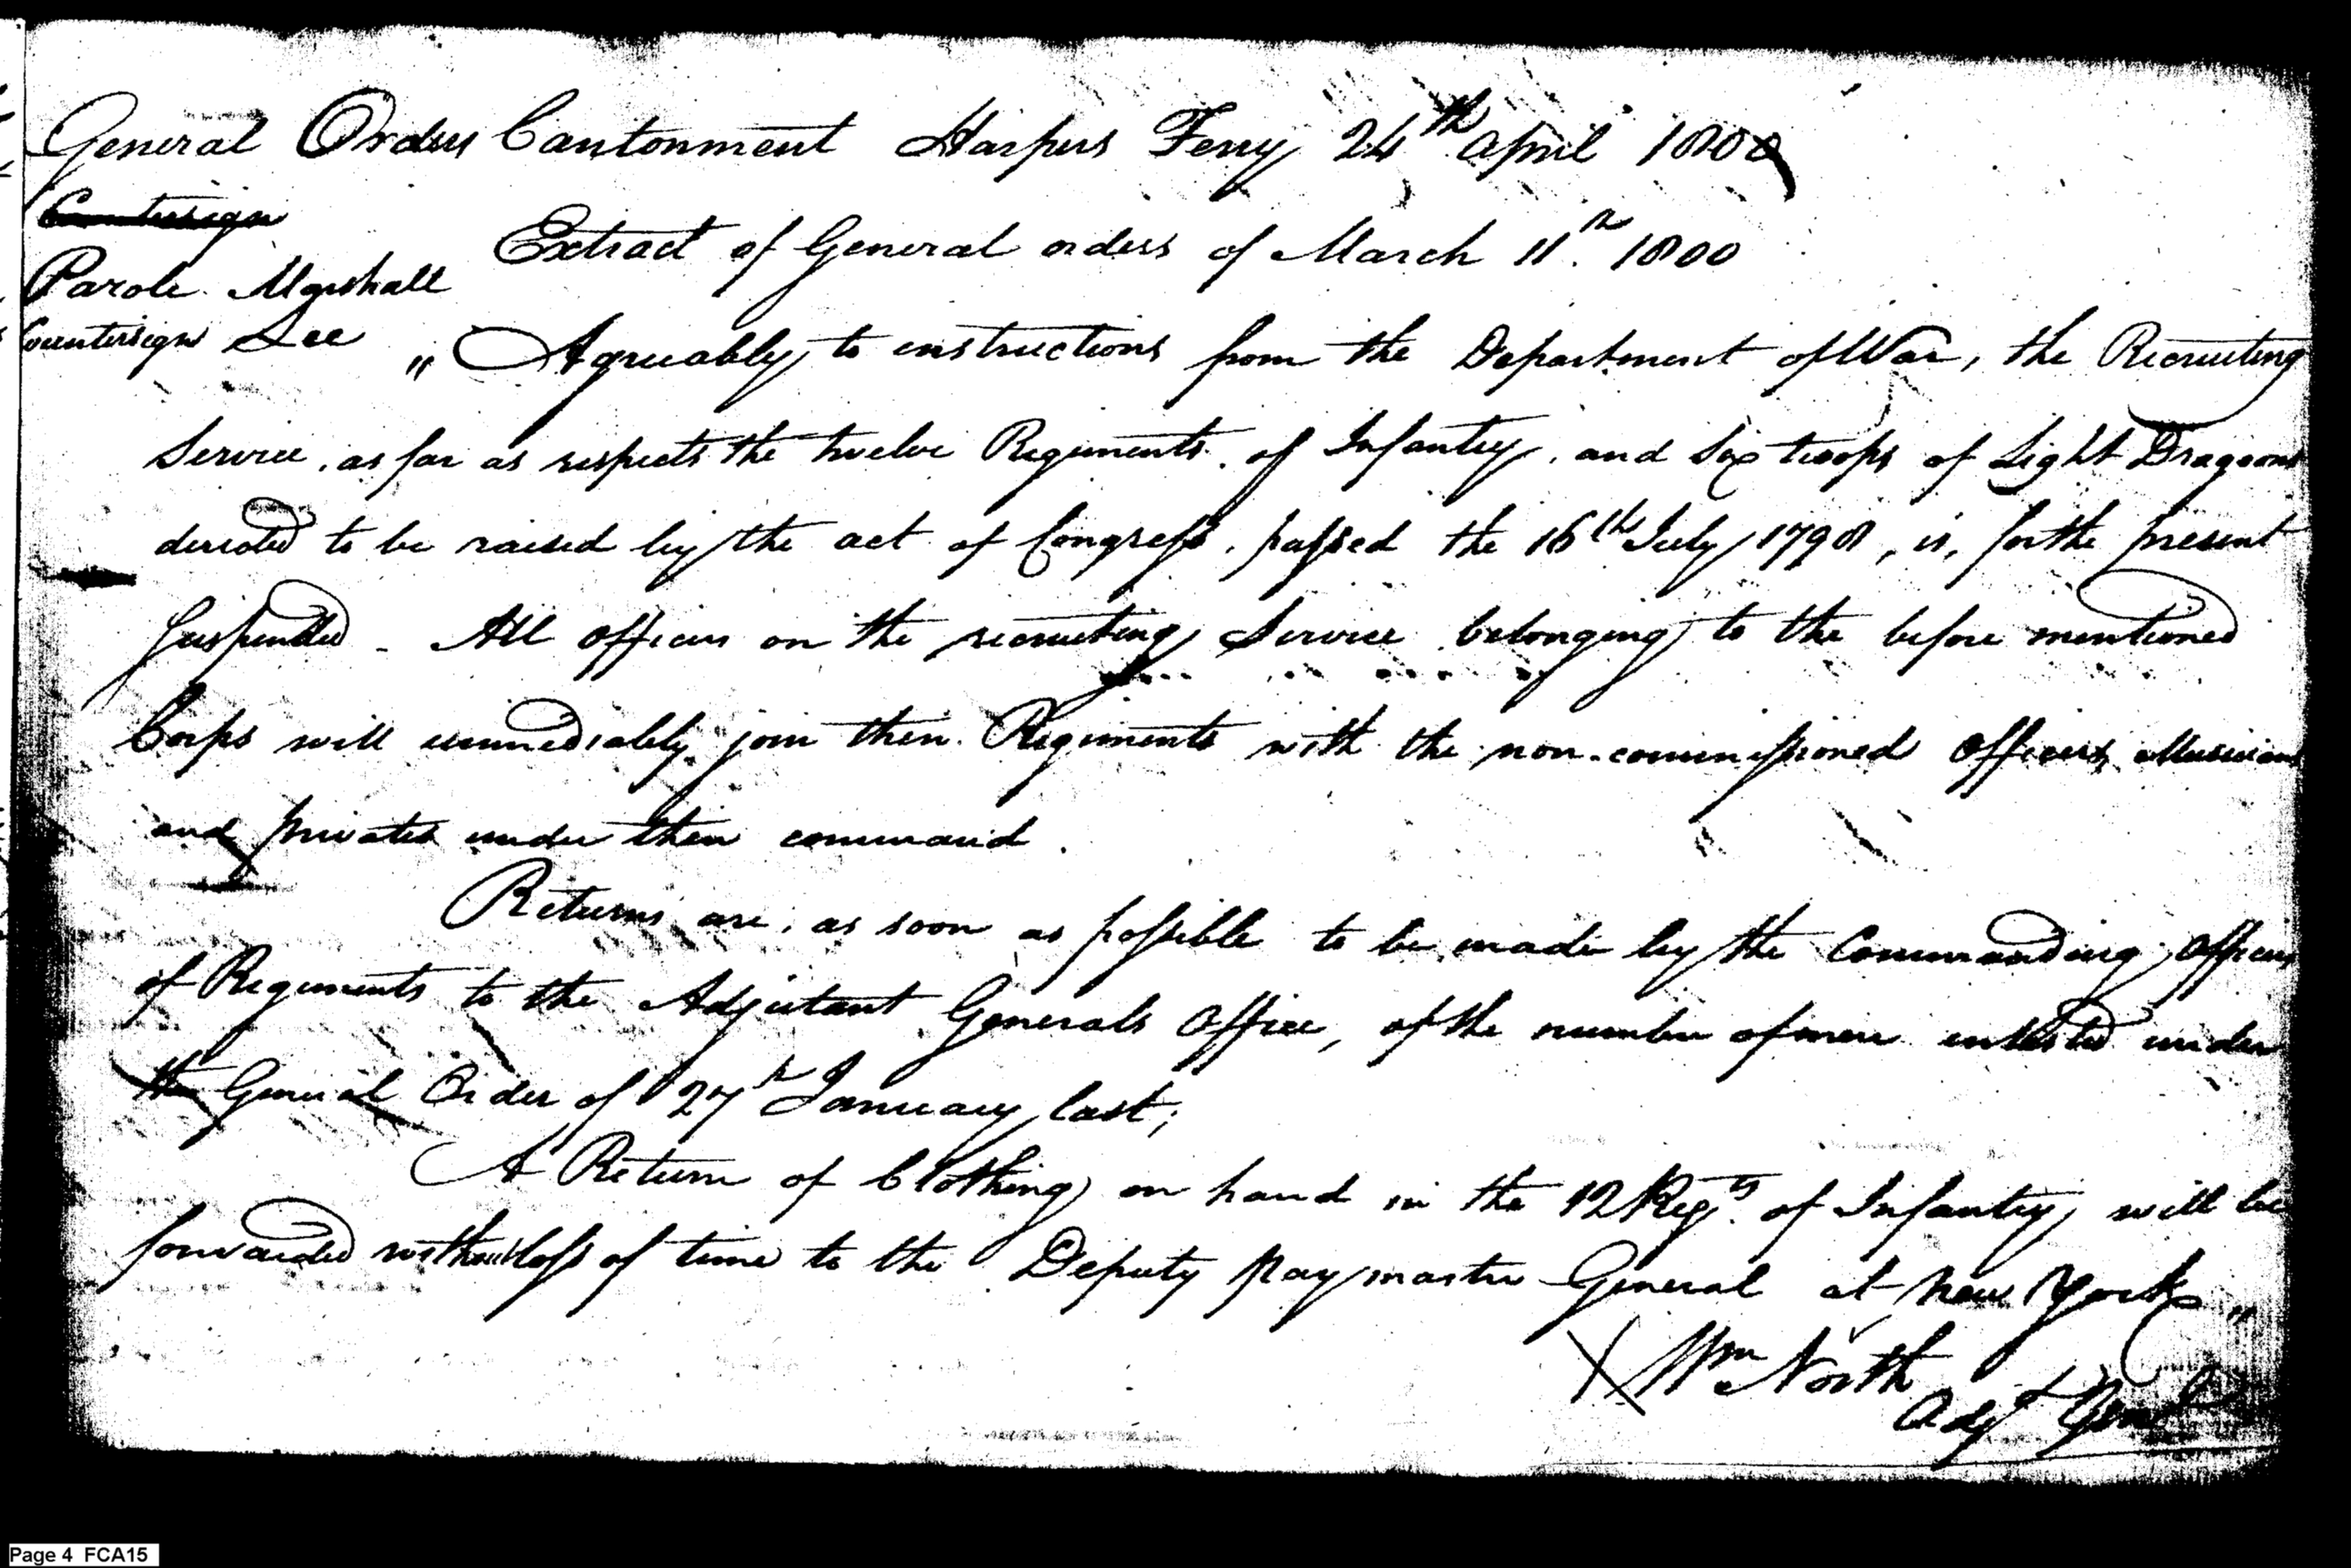 General Orders Cantonment Harpers Ferry 24th April 1800
Countersign
Extract of General orders of March 11th. 1800
Parole Marshall
Countersign Lee
„ Agreeably to instructions from the Department of War, the Recruiting
Service, as far as respects the twelve Regiments of Infantry, and Six troops of Light Dragoons
directed to be raised by the act of Congress, passed the 16th July 1798, is, for the present
Suspended - All officers on the recruiting Service belonging to the before mentioned
Corps will immediately join their Regiments with the non-commissioned officers, Musicians
and privates under their command.
Returns are, as soon as possible to be made by the Commanding officers
of Regiments to the Adjutant Generals office, of the number of men enlisted under
the General Order of 27th January last;
A Return of Clothing on hand in the 12 Regts. of Infantry will be
forwarded without loss of time to the Deputy Paymaster General at New York „
X Wm North
Adjt Genl
Page 4 FCA15